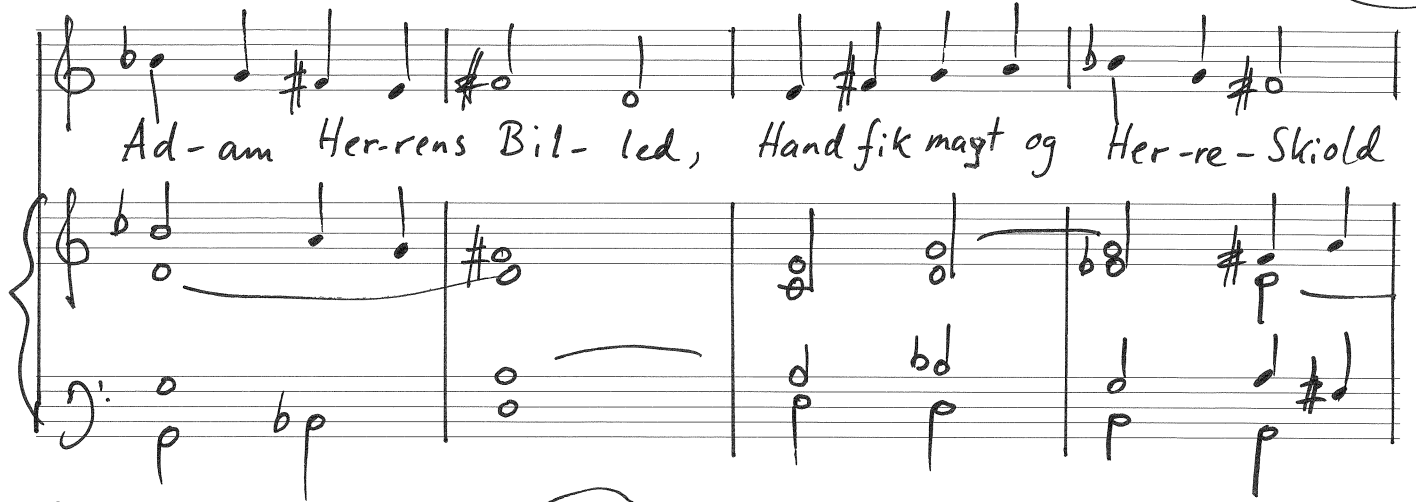 Ad-am Her-rens Bil-led, Hand fik magt og Her-re-Skiold